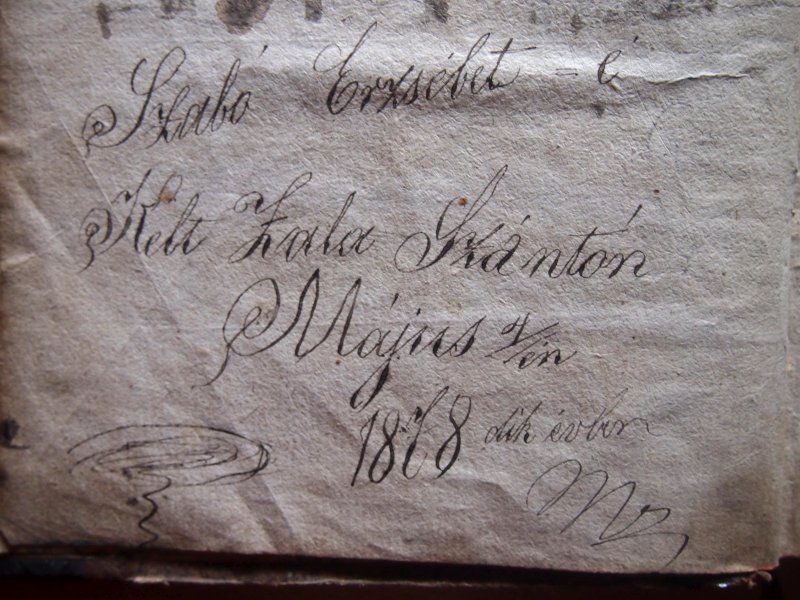 Szabó Erzsébet-é
Kelt Zala Szántón
Május 4/én
1878 dik évben